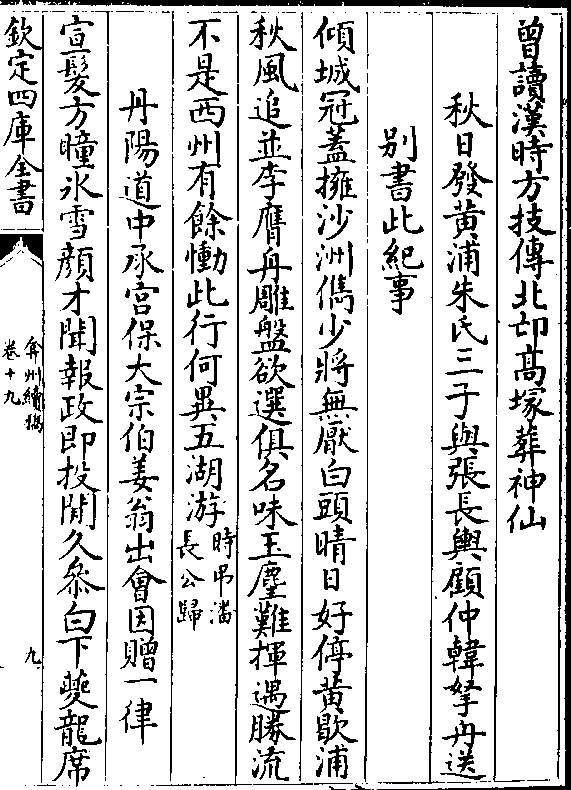 曾讀漢時方技傳北邙高塚葬神仙
秋日發黄浦朱氏三子與張長輿顧仲韓拏舟送
别書此紀事
傾城冠蓋擁沙洲儁少將無厭白頭晴日好停黄歇浦
秋風追並李膺舟雕盤欲選俱名味玉麈難揮遇勝流
不是西州有餘慟此行何異五湖游時弔潘長公歸
丹陽道中承宫保大宗伯姜翁出會因贈一律
宣髪方瞳氷雪顔才聞報政即投閒久叅白下夔龍席
欽定四庫全書
弇州續稿
卷十九
九